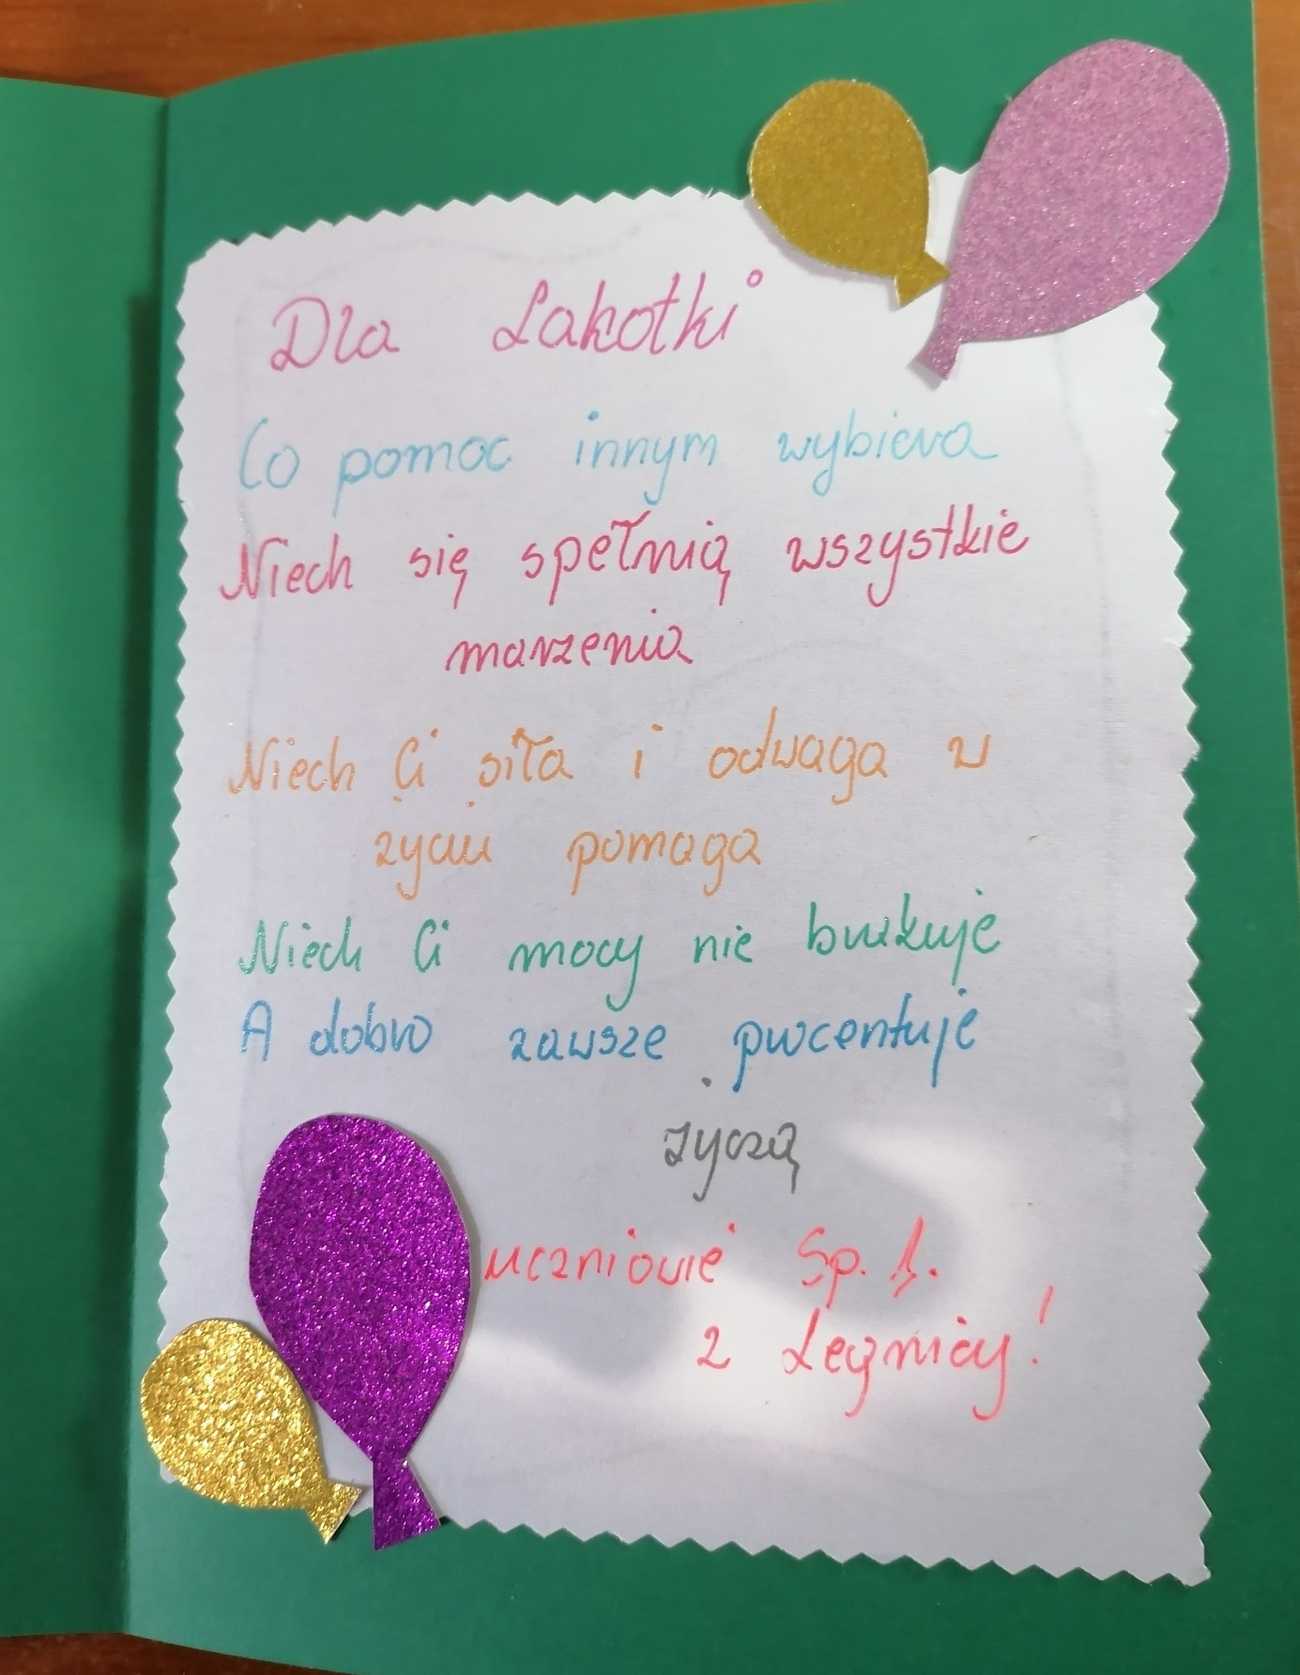 Dla Łakotki
Co pomoc innym wybiera
Niech się spełnią wszystkie
marzenia
Niech Ci siła i odwaga w
życiu pomaga
Niech Ci mocy nie brakuje
A dobro zawsze procentuje
życzą
uczniowie Sp. 1.
z Legnicy!